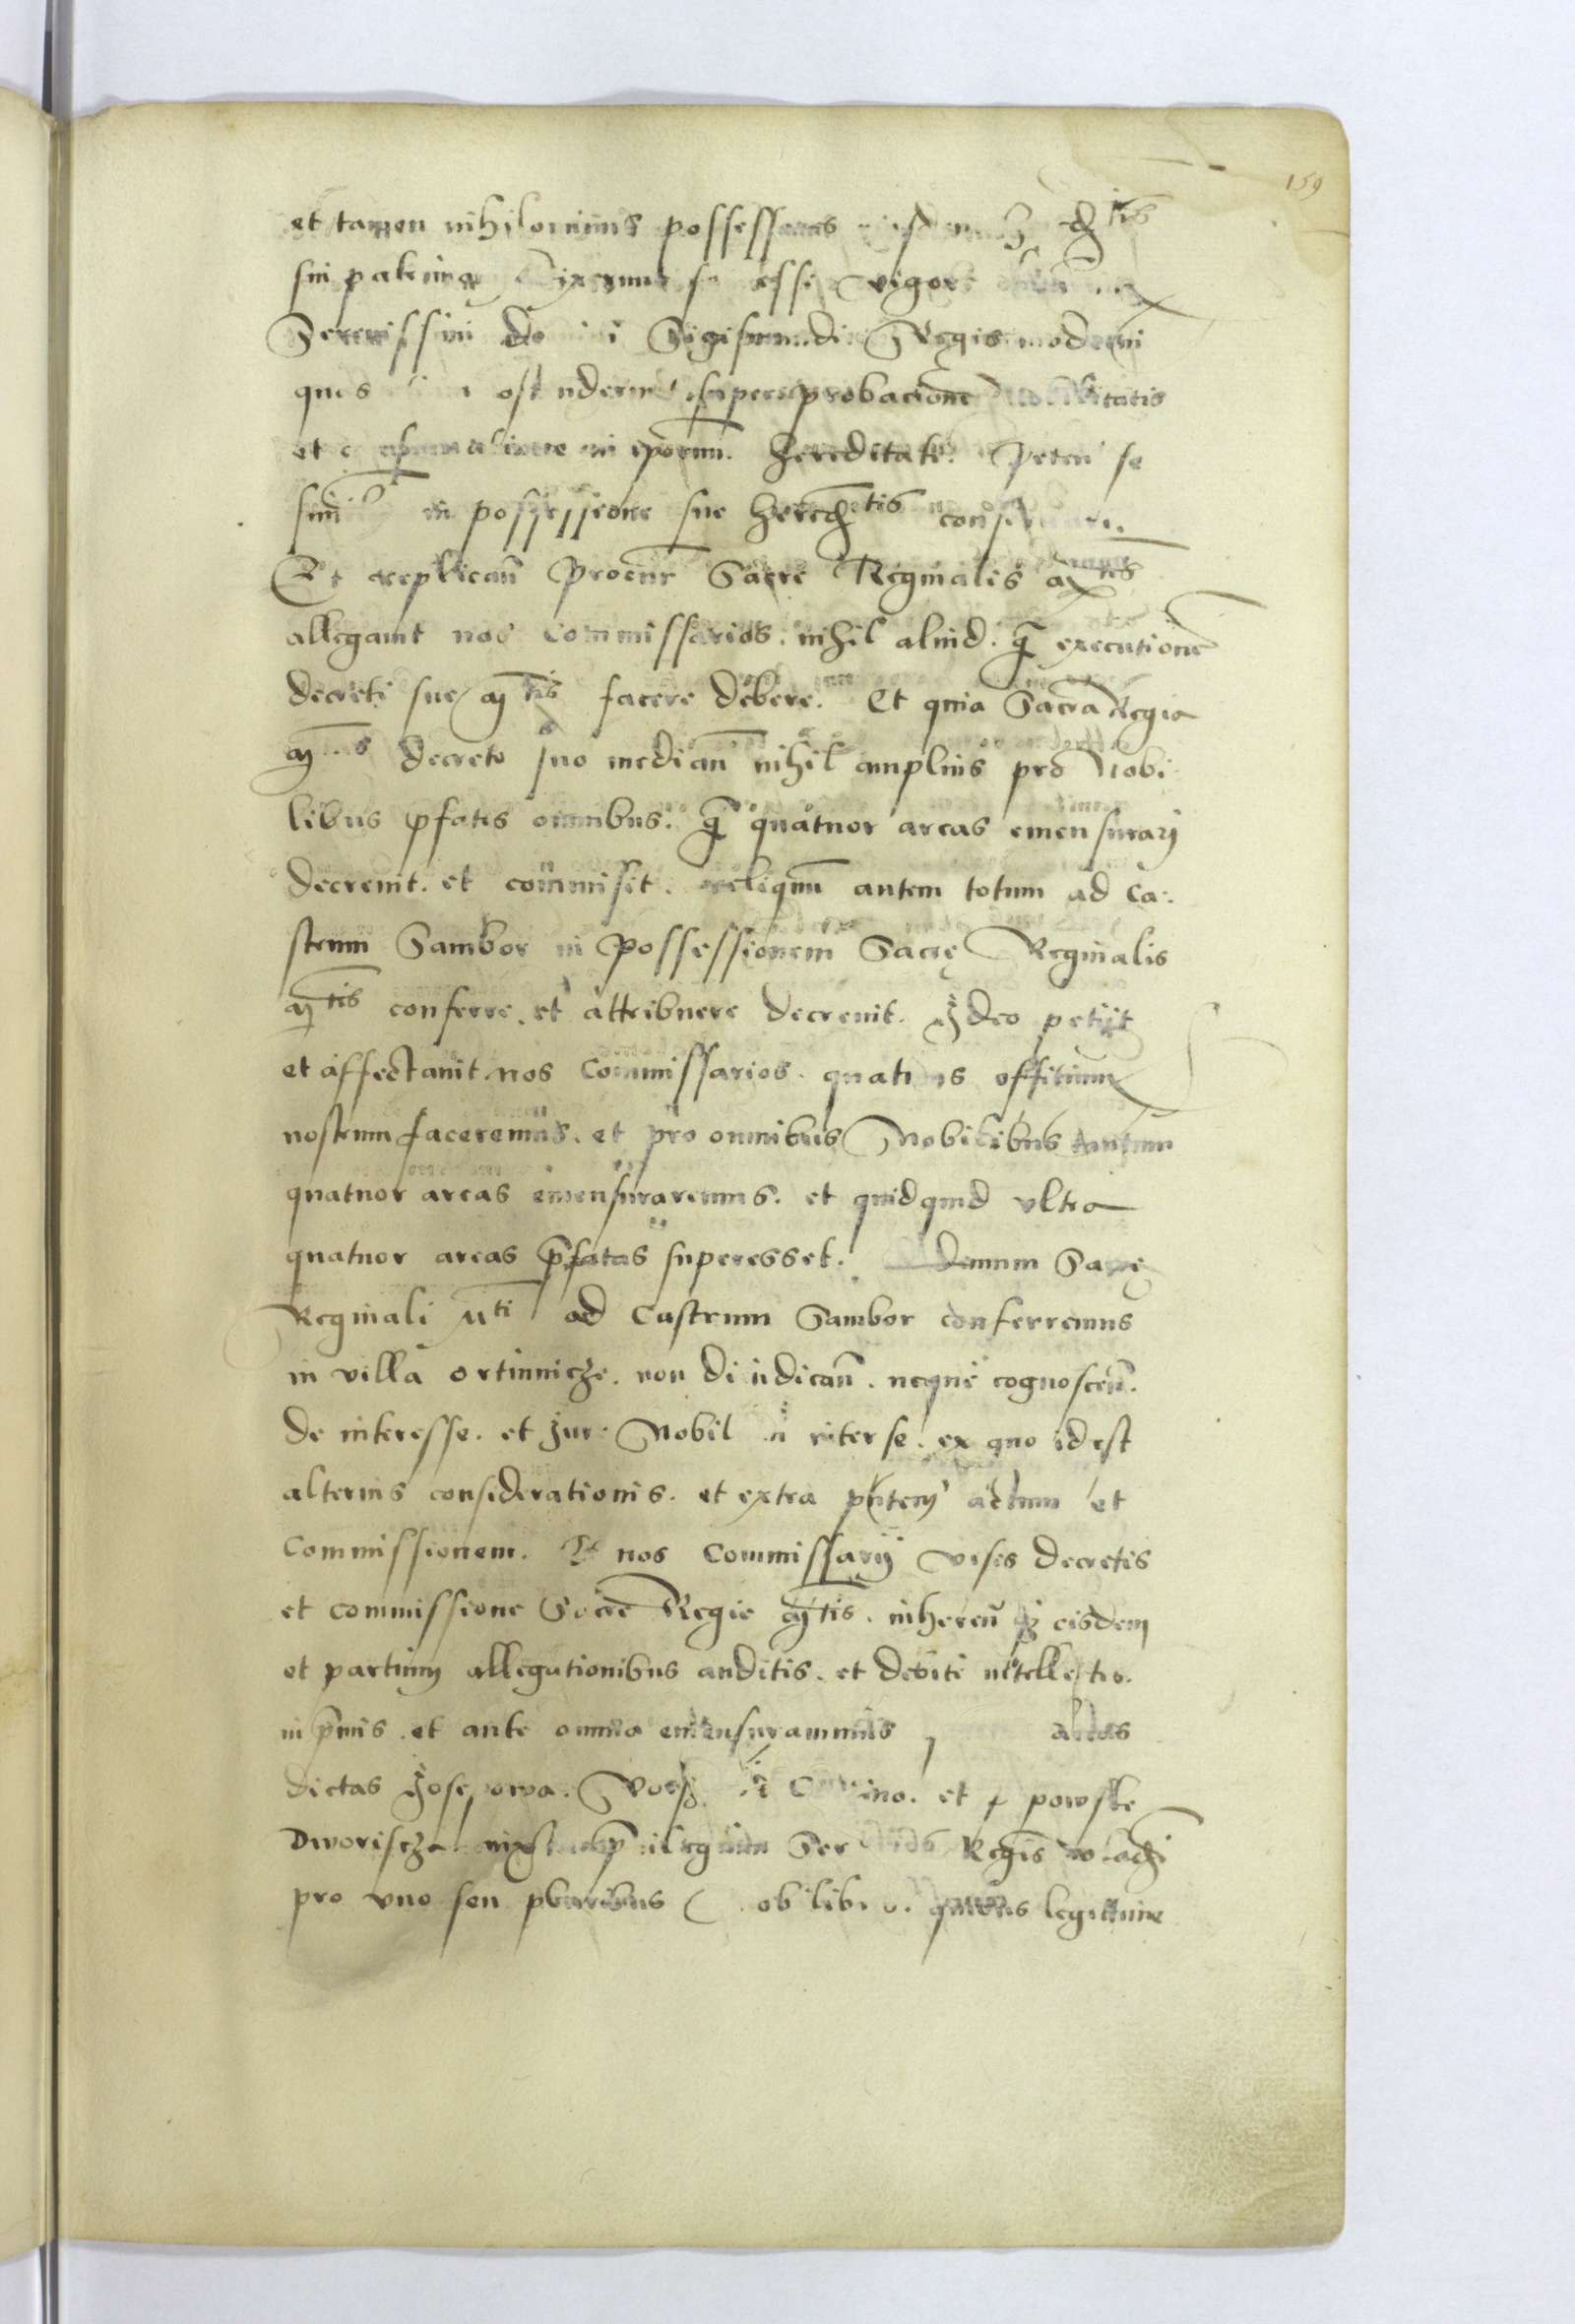 159
et tamen nihilominus possessores
sui paterna dixerunt se esse vigore
Serenissimi domini Sigismundi Regis moderni
quas ostenderunt super probacione Nobilitatis
et confirmatione in eorum. hereditate. Peten se
simil in possessione sue heredtis conservari.
Et replicañ Procur̃ Sacre Reginalis Mtis
allegavit nos Commissarios. nihil aliud. q̃ executionẽ
decreti sue Mtis facere debere. Et quia Sacra Regia
Mtas decreto suo medianñ nihil amplius pro Nobi
libus pfatis omnibus. q̃ quatuor areas emensurarj
decrevit. et commisit. reliquũ autem totum ad Ca:
strum Sambor in Possessionem Sacrę Reginalis
Mtis conferre. et attribuere decrevit. Ideo petijt
et affectavit nos Commissarios. quatenus offitium
nostrum faceremus. et pro omnibus Nobilibus tantum
quatuor areas emensuraremus. et quidquid ultra
quatuor areas p̃fatas superesset. demum Sacrę
Reginali Mti ad Castrum Sambor conferremus
in villa ortinnicze. non diiudicañ. neque cognosceñ.
de interesse. et Jure Nobiliũ inter se. ex quo id est
alterius considerationis. et extra pñtem actum et
Commissionem. Et nos Commissarij visis decretis
et commissione Sacre Regie Mtis. inhereñ eisdem
et partium allegationibus auditis. et debite intellectis.
in p̃mis. et ante omnia emensuravimus areas
dictas et powske
Dworiscza Regis
pro uno seu pluribus legittime